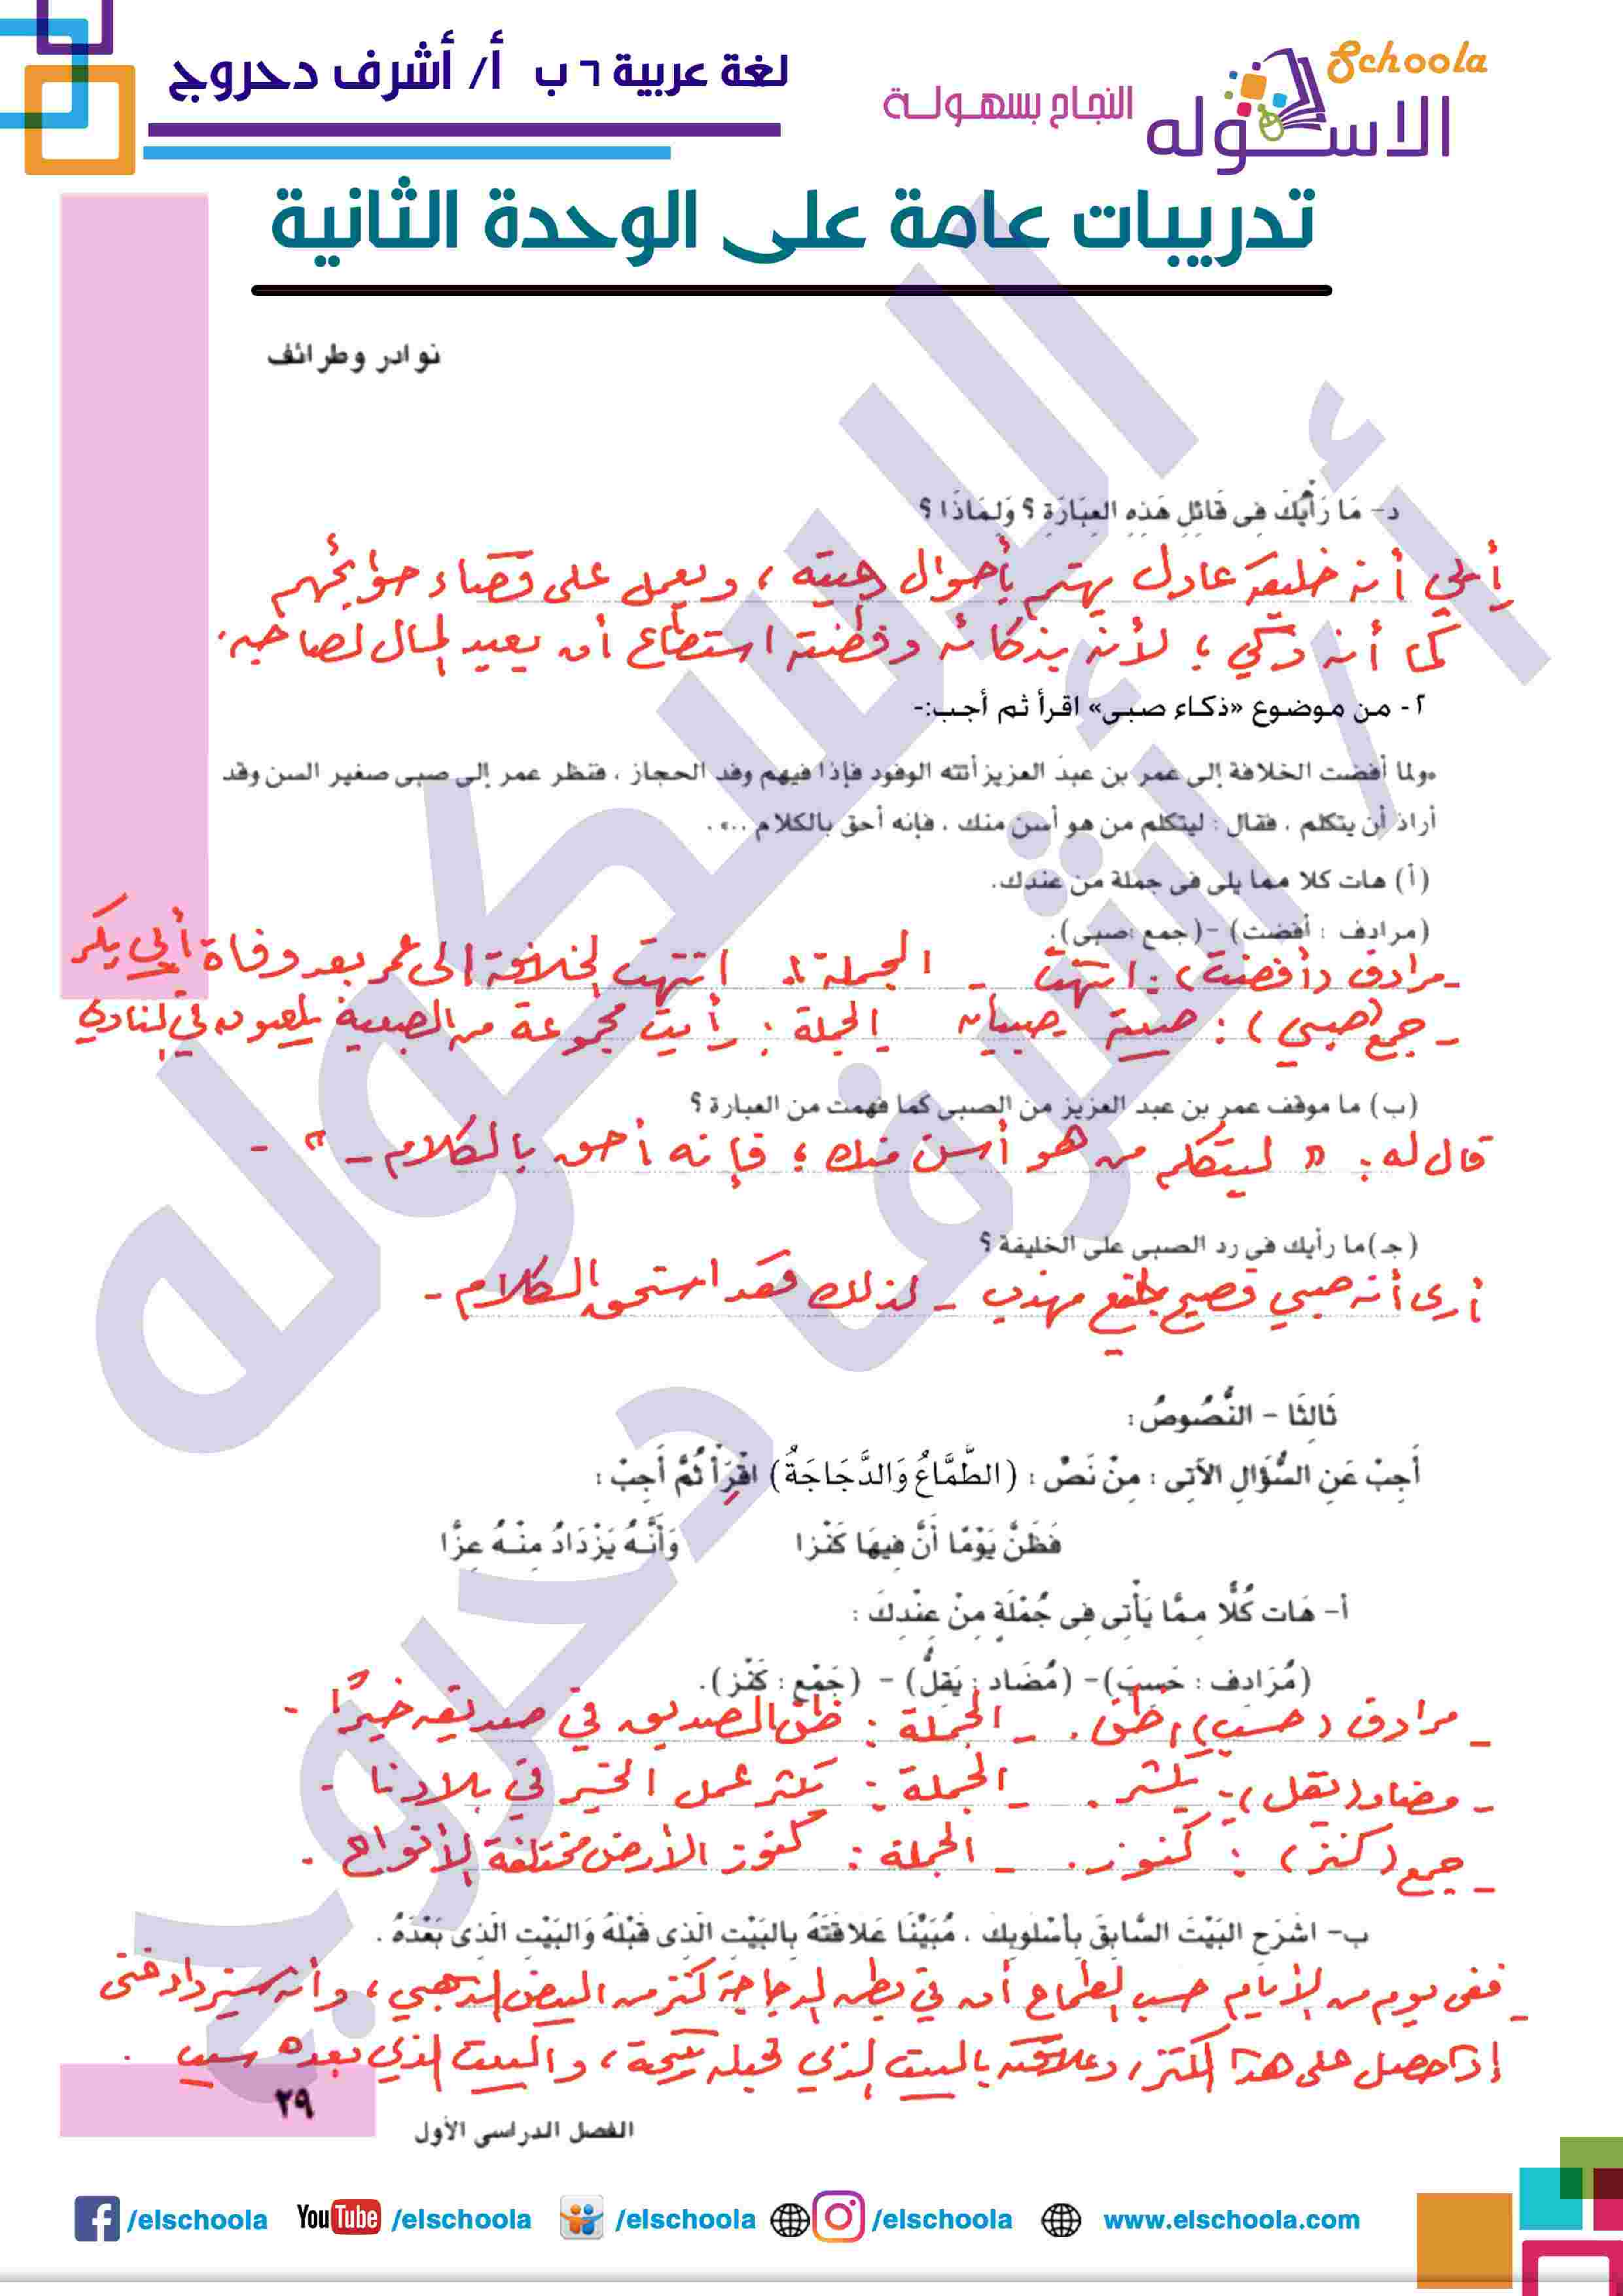 Schoola
الاسكوله
النجاح بسهولة
لغة عربية ٦ ب أ/ أشرف دحروج
تدريبات عامة على الوحدة الثانية
نوادر وطرائف
د- مَا رَأْيُكَ فِى قَائِلِ هَذِهِ العِبَارَةِ ؟ وَلِمَاذَا ؟
رأيي أنه خليفة عادل يهتم بأحوال رعيته ، ويعمل على قضاء حوائجهم
كما أنه ذكي ؛ لأنه بذكائه وفطنته استطاع أن يعيد المال لصاحبه .
٢- من موضوع «ذكاء صبى» اقرأ ثم أجب:-
«ولما أفضت الخلافة إلى عمر بن عبد العزيز أتته الوفود فإذا فيهم وفد الحجاز ، فنظر عمر إلى صبى صغير السن وقد
أراد أن يتكلم ، فقال : ليتكلم من هو أسن منك ، فإنه أحق بالكلام ..» .
(أ) هات كلا مما يلى فى جملة من عندك.
(مرادف : أفضت) -(جمع :صبى).
- مرادف (أفضت) : انتهت - الجملة : انتهت الخلافة إلى عمر بعد وفاة أبي بكر
- جمع (صبي) : صبية صبيان - الجملة : رأيت مجموعة من الصبية يلعبون في النادي
(ب) ما موقف عمر بن عبد العزيز من الصبى كما فهمت من العبارة ؟
قال له : « ليتكلم من هو أسن منك ؛ فإنه أحق بالكلام - » -
(جـ)ما رأيك فى رد الصبى على الخليفة ؟
أرى أنه صبي فصيح بليغ مهذب - لذلك فقد استحق الكلام -
ثَالِثًا - النُّصُوصُ :
أَجِبْ عَنِ السُّؤَالِ الآتِى : مِنْ نَصِّ : (الطَّمَّاعُ وَالدَّجَاجَةُ) اقْرَأْ ثُمَّ أَجِبْ :
فَظَنَّ يَوْمًا أَنَّ فِيهَا كَنْزا وَأَنَّـهُ يَزْدَادُ مِنْـهُ عِزًّا
أ- هَات كُلًّا مِمَّا يَأْتِى فِى جُمْلَةٍ مِنْ عِنْدِكَ :
(مُرَادِف : حَسِبَ)- (مُضَاد : يَقِلُّ) - (جَمْع : كَنْز).
- مرادف (حسب) : ظن . - الجملة : ظن الصديق في صديقه خيرًا -
- مضاد (يقل) : يكثر . - الجملة : يكثر عمل الخير في بلادنا -
- جمع (كنز) : كنوز . - الجملة : كنوز الأرض مختلفة الأنواع .
ب- اشْرَح البَيْتَ السَّابِقَ بِأُسْلُوبِكَ ، مُبَيِّنًا عَلاقَتَهُ بِالبَيْتِ الَّذِى قَبْلَهُ وَالبَيْتِ الَّذِى بَعْدَهُ .
- ففى يوم من الأيام حسب الطماع أن في بطن الدجاجة كنز من البيض الذهبي ، وأنه سيزداد غنى
إذا حصل على هذا الكنز ، وعلاقته بالبيت الذي قبله نتيجة ، والبيت الذي بعده سبب .
٢٩
الفصل الدراسى الأول
/elschoola YouTube /elschoola /elschoola /elschoola www.elschoola.com
الاسكوله
أ/ أشرف دحروج